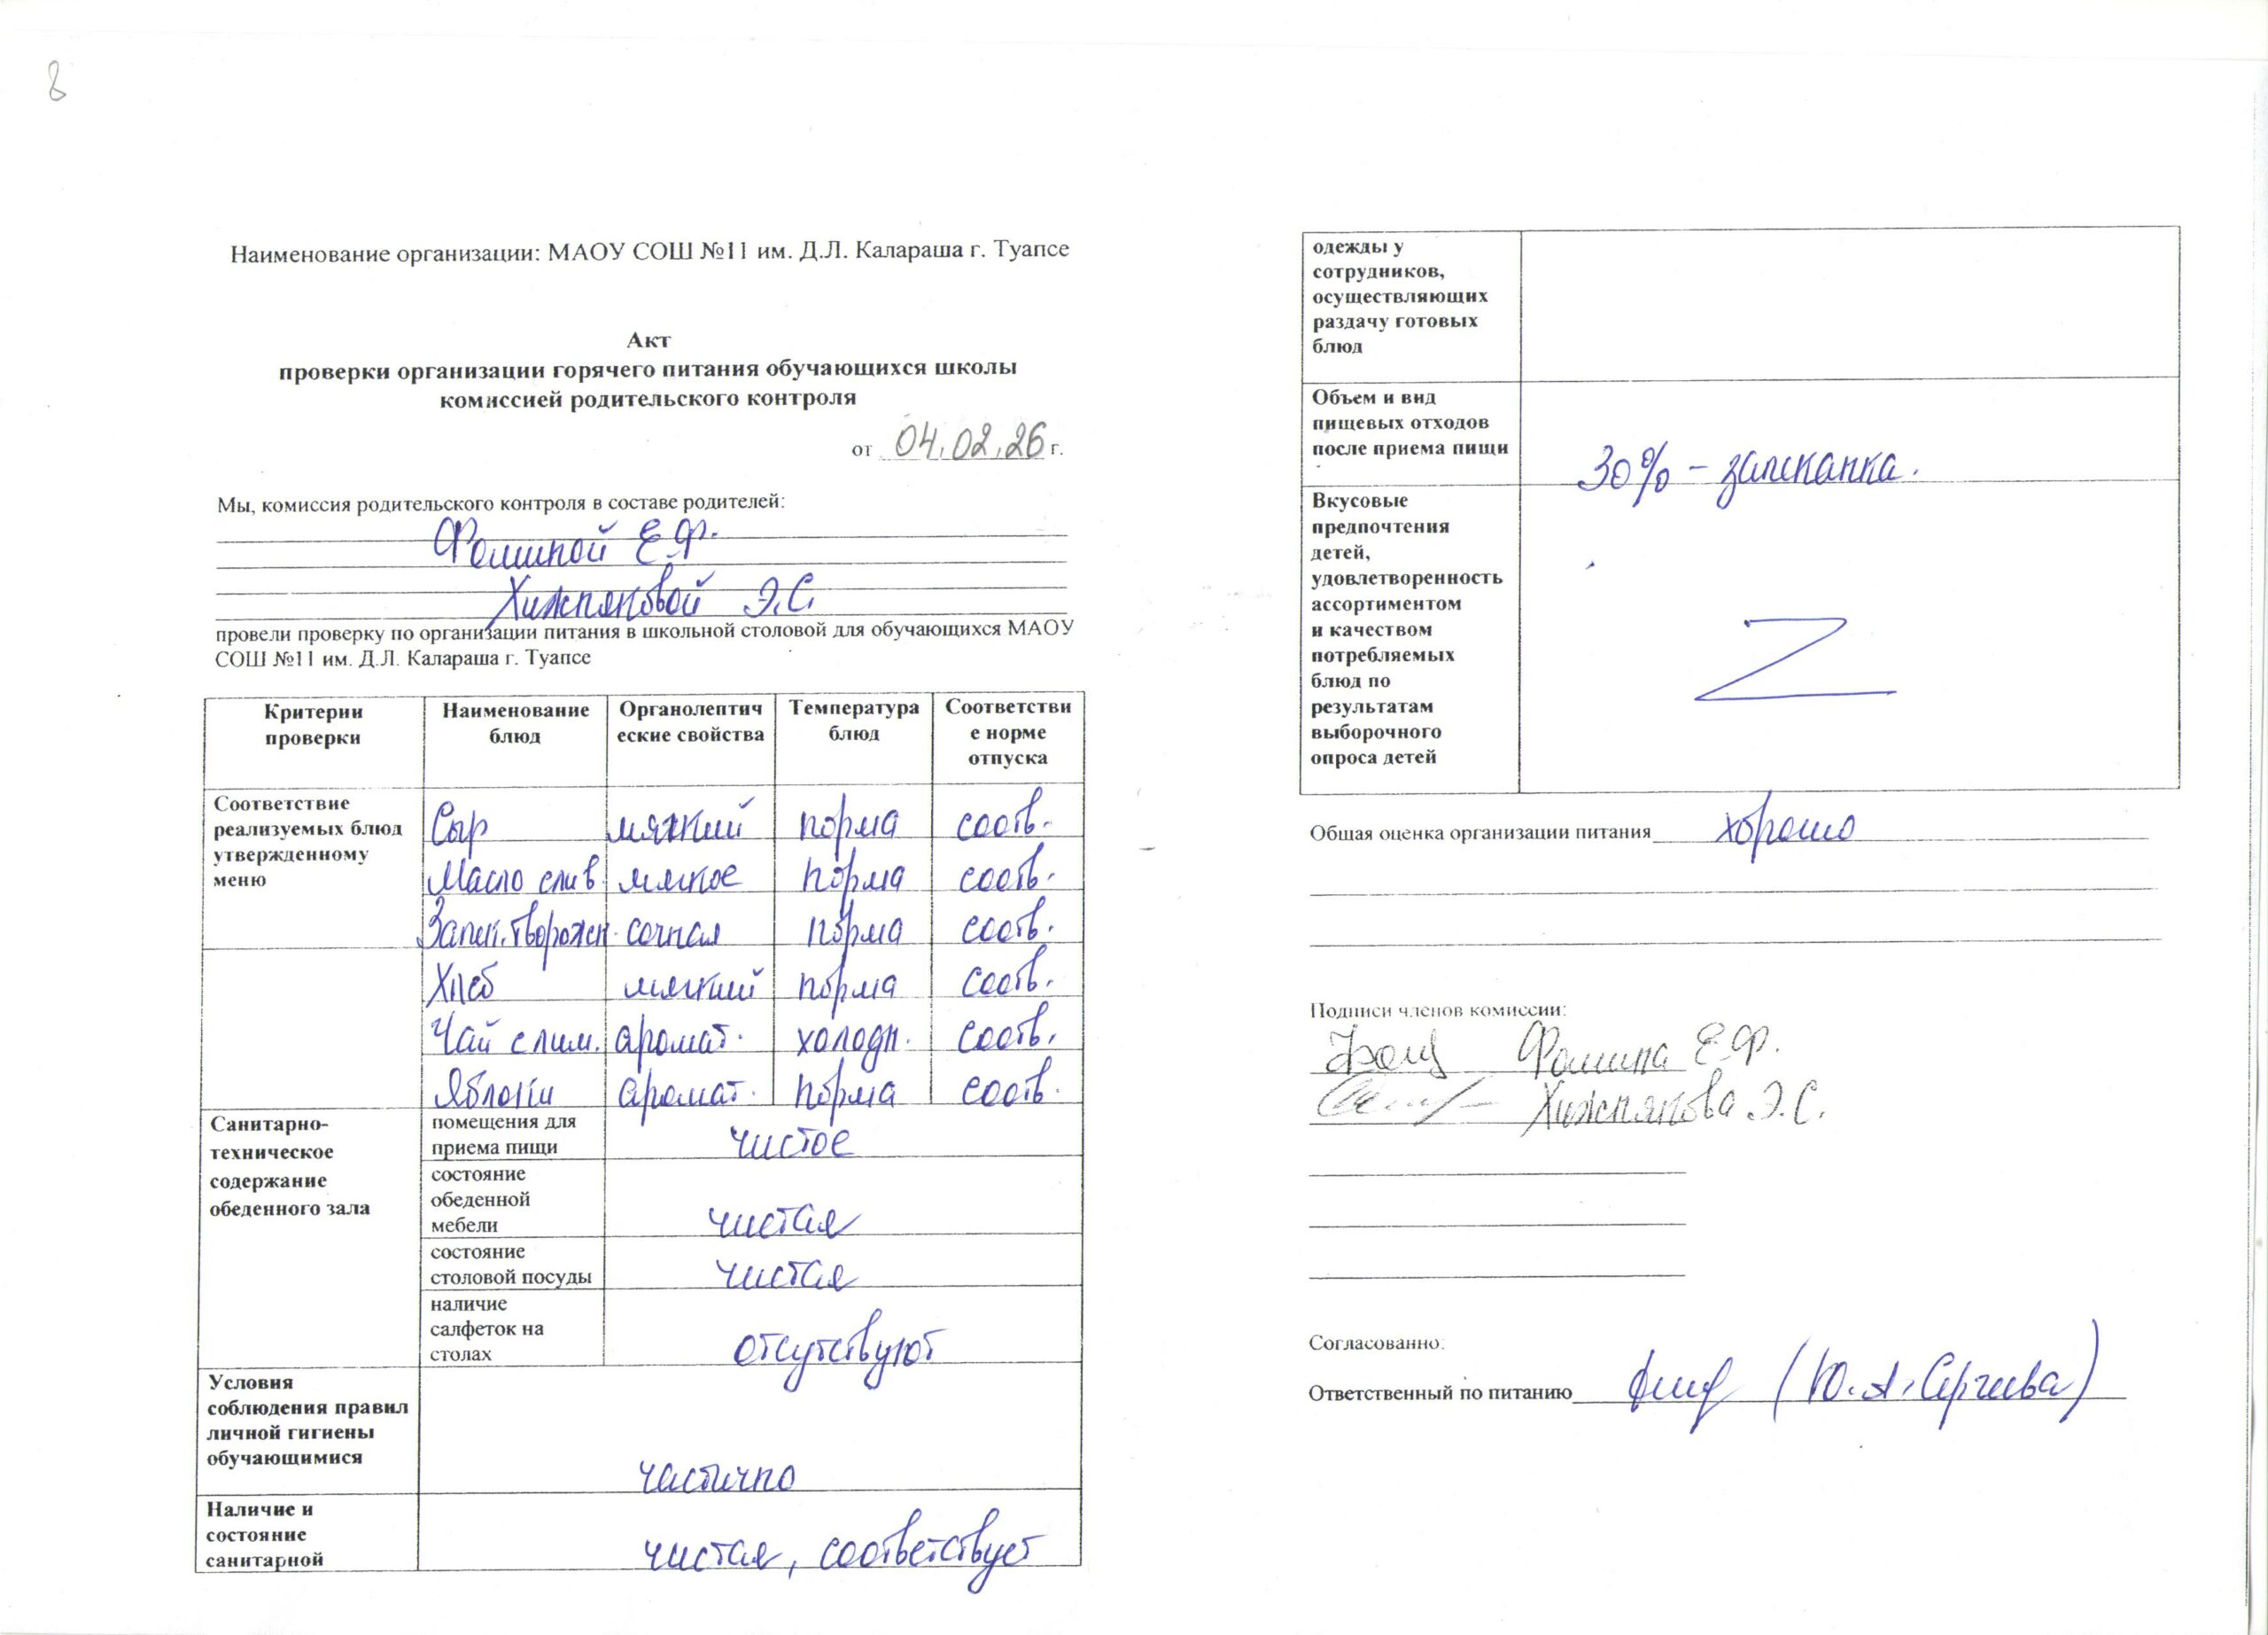 8
Наименование организации: МАОУ СОШ №11 им. Д.Л. Калараша г. Туапсе
Акт
проверки организации горячего питания обучающихся школы
комиссией родительского контроля
от 04.02.26 г.
Мы, комиссия родительского контроля в составе родителей:
Фоминой Е.Ф.
Хижняковой Э.С.
провели проверку по организации питания в школьной столовой для обучающихся МАОУ
СОШ №11 им. Д.Л. Калараша г. Туапсе
Критерии проверки Наименование блюд Органолептические свойства Температура блюд Соответствие норме отпуска
Соответствие
реализуемых блюд
утвержденному
меню
Сыр мягкий норма соотв.
Масло слив. мягкое норма соотв.
Запек. творожн. сочная норма соотв.
Хлеб мягкий норма соотв.
Чай с лим. аромат. холодн. соотв.
Яблоки аромат. норма соотв.
Санитарно-
техническое
содержание
обеденного зала
помещения для
приема пищи чистое
состояние
обеденной
мебели чистая
состояние
столовой посуды чистая
наличие
салфеток на
столах отсутствуют
Условия
соблюдения правил
личной гигиены
обучающимися частично
Наличие и
состояние
санитарной чистая, соответствует
одежды у
сотрудников,
осуществляющих
раздачу готовых
блюд
Объем и вид
пищевых отходов
после приема пищи 30% - запеканка.
Вкусовые
предпочтения
детей,
удовлетворенность
ассортиментом
и качеством
потребляемых
блюд по
результатам
выборочного
опроса детей
Общая оценка организации питания хорошо
Подписи членов комиссии:
Фомина Е.Ф.
Хижнякова Э.С.
Согласованно:
Ответственный по питанию (Ю.А. Сергеева)